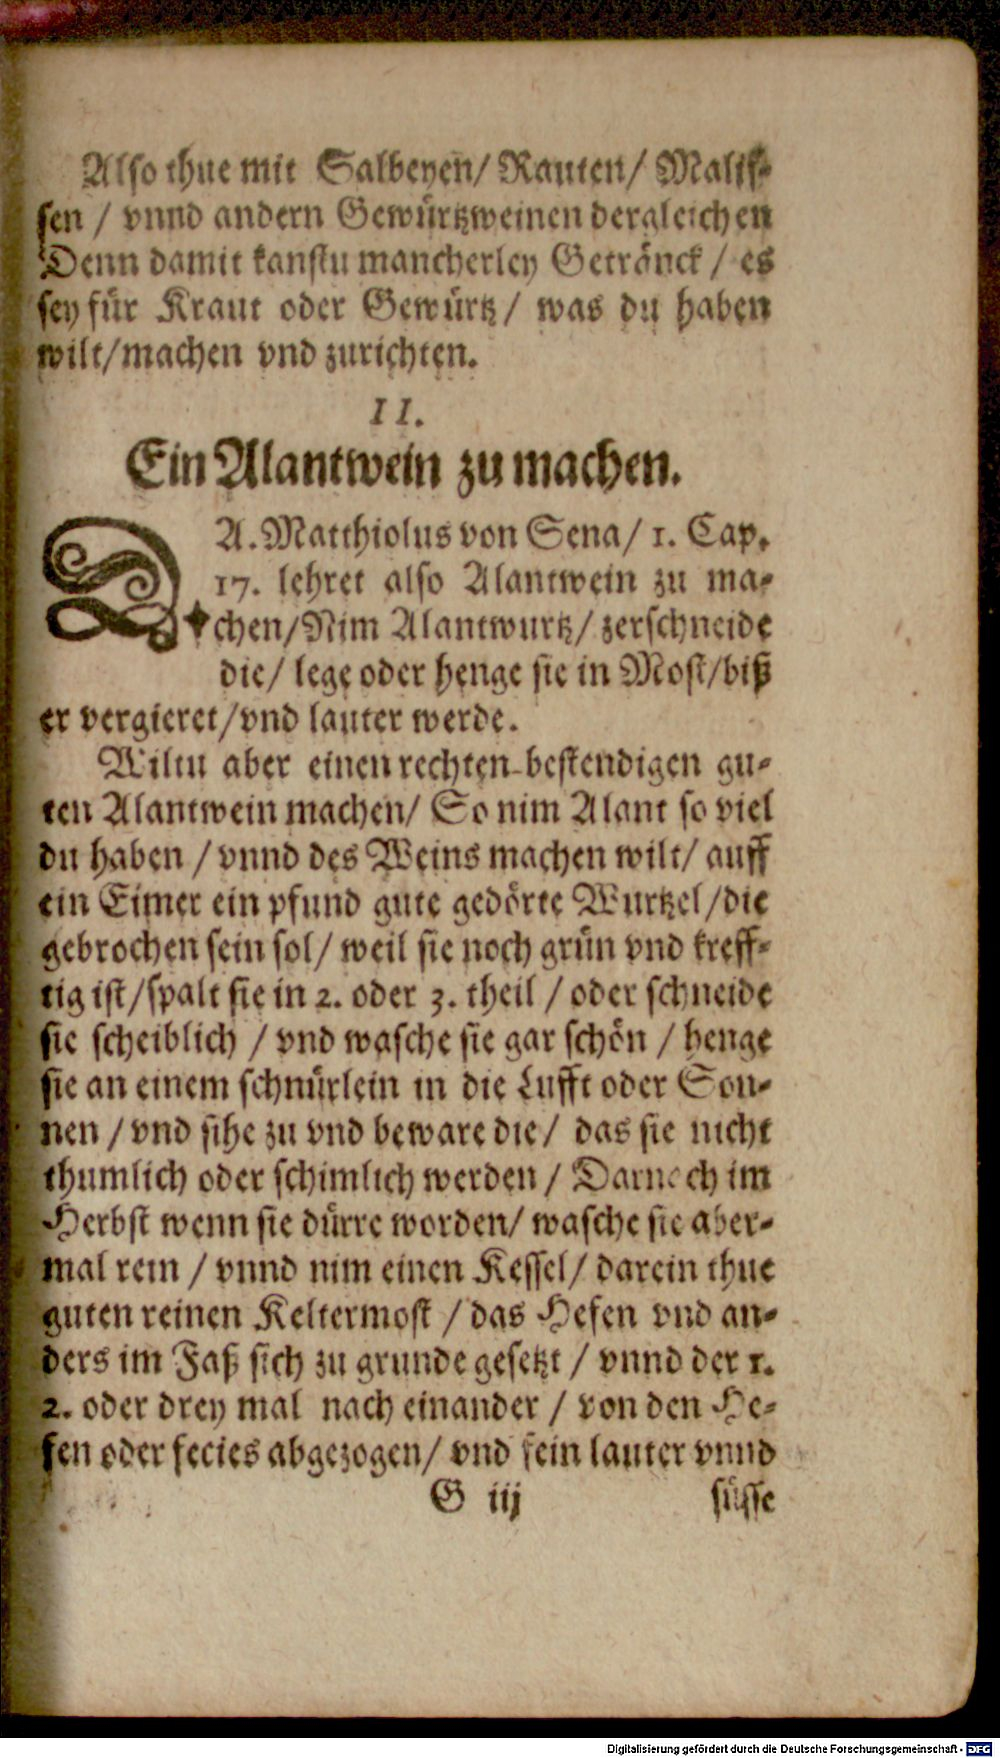 Also thue mit Salbeyen/ Rauten/ Malis-
sen / vnnd andern Gewürtzweinen dergleichen
Denn damit kanstu mancherley Getränck / es
sey für Kraut oder Gewürtz / was du haben
wilt/machen vnd zurichten.
II.
Ein Alantwein zu machen.
A. Matthiolus von Sena/ 1. Cap.
17. lehret also Alantwein zu ma-
chen/Nim Alantwurtz/ zerschneide
die/ lege oder henge sie in Most/biß
er vergieret/vnd lauter werde.
Wiltu aber einen rechten bestendigen gu-
ten Alantwein machen/ So nim Alant so viel
du haben / vnnd des Weins machen wilt/ auff
ein Eimer ein pfund gute gedörte Wurtzel/die
gebrochen sein sol/ weil sie noch grün vnd kreff-
tig ist/spalt sie in 2. oder 3. theil / oder schneide
sie scheiblich / vnd wasche sie gar schön / henge
sie an einem schnürlein in die Lufft oder Son-
nen / vnd sihe zu vnd beware die/ das sie nicht
thumlich oder schimlich werden / Darnach im
Herbst wenn sie dürre worden/ wasche sie aber-
mal rein / vnnd nim einen Kessel/ darein thue
guten reinen Keltermost / das Hefen vnd an-
ders im Faß sich zu grunde gesetzt / vnnd der 1.
2. oder drey mal nach einander / von den He-
fen oder fecies abgezogen/ vnd fein lauter vnnd
G iij süsse
Digitalisierung gefördert durch die Deutsche Forschungsgemeinschaft - DFG